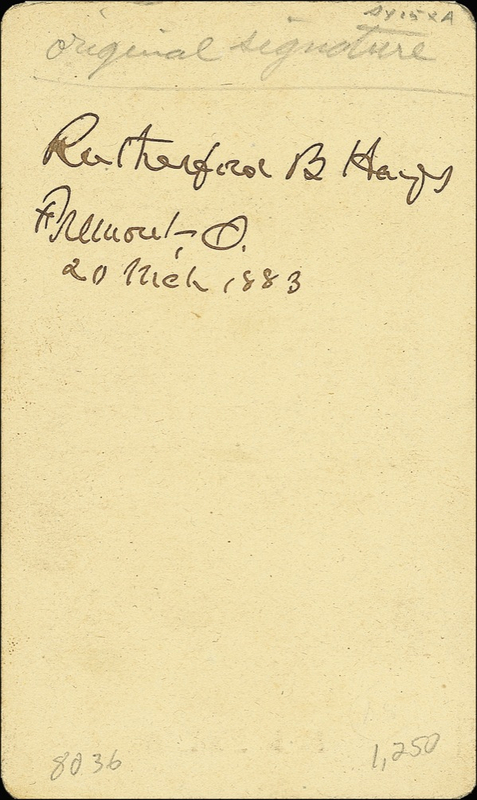 original signature
Rutherford B Hayes
Fremont, O.
20 Mch 1883
8036
1,250